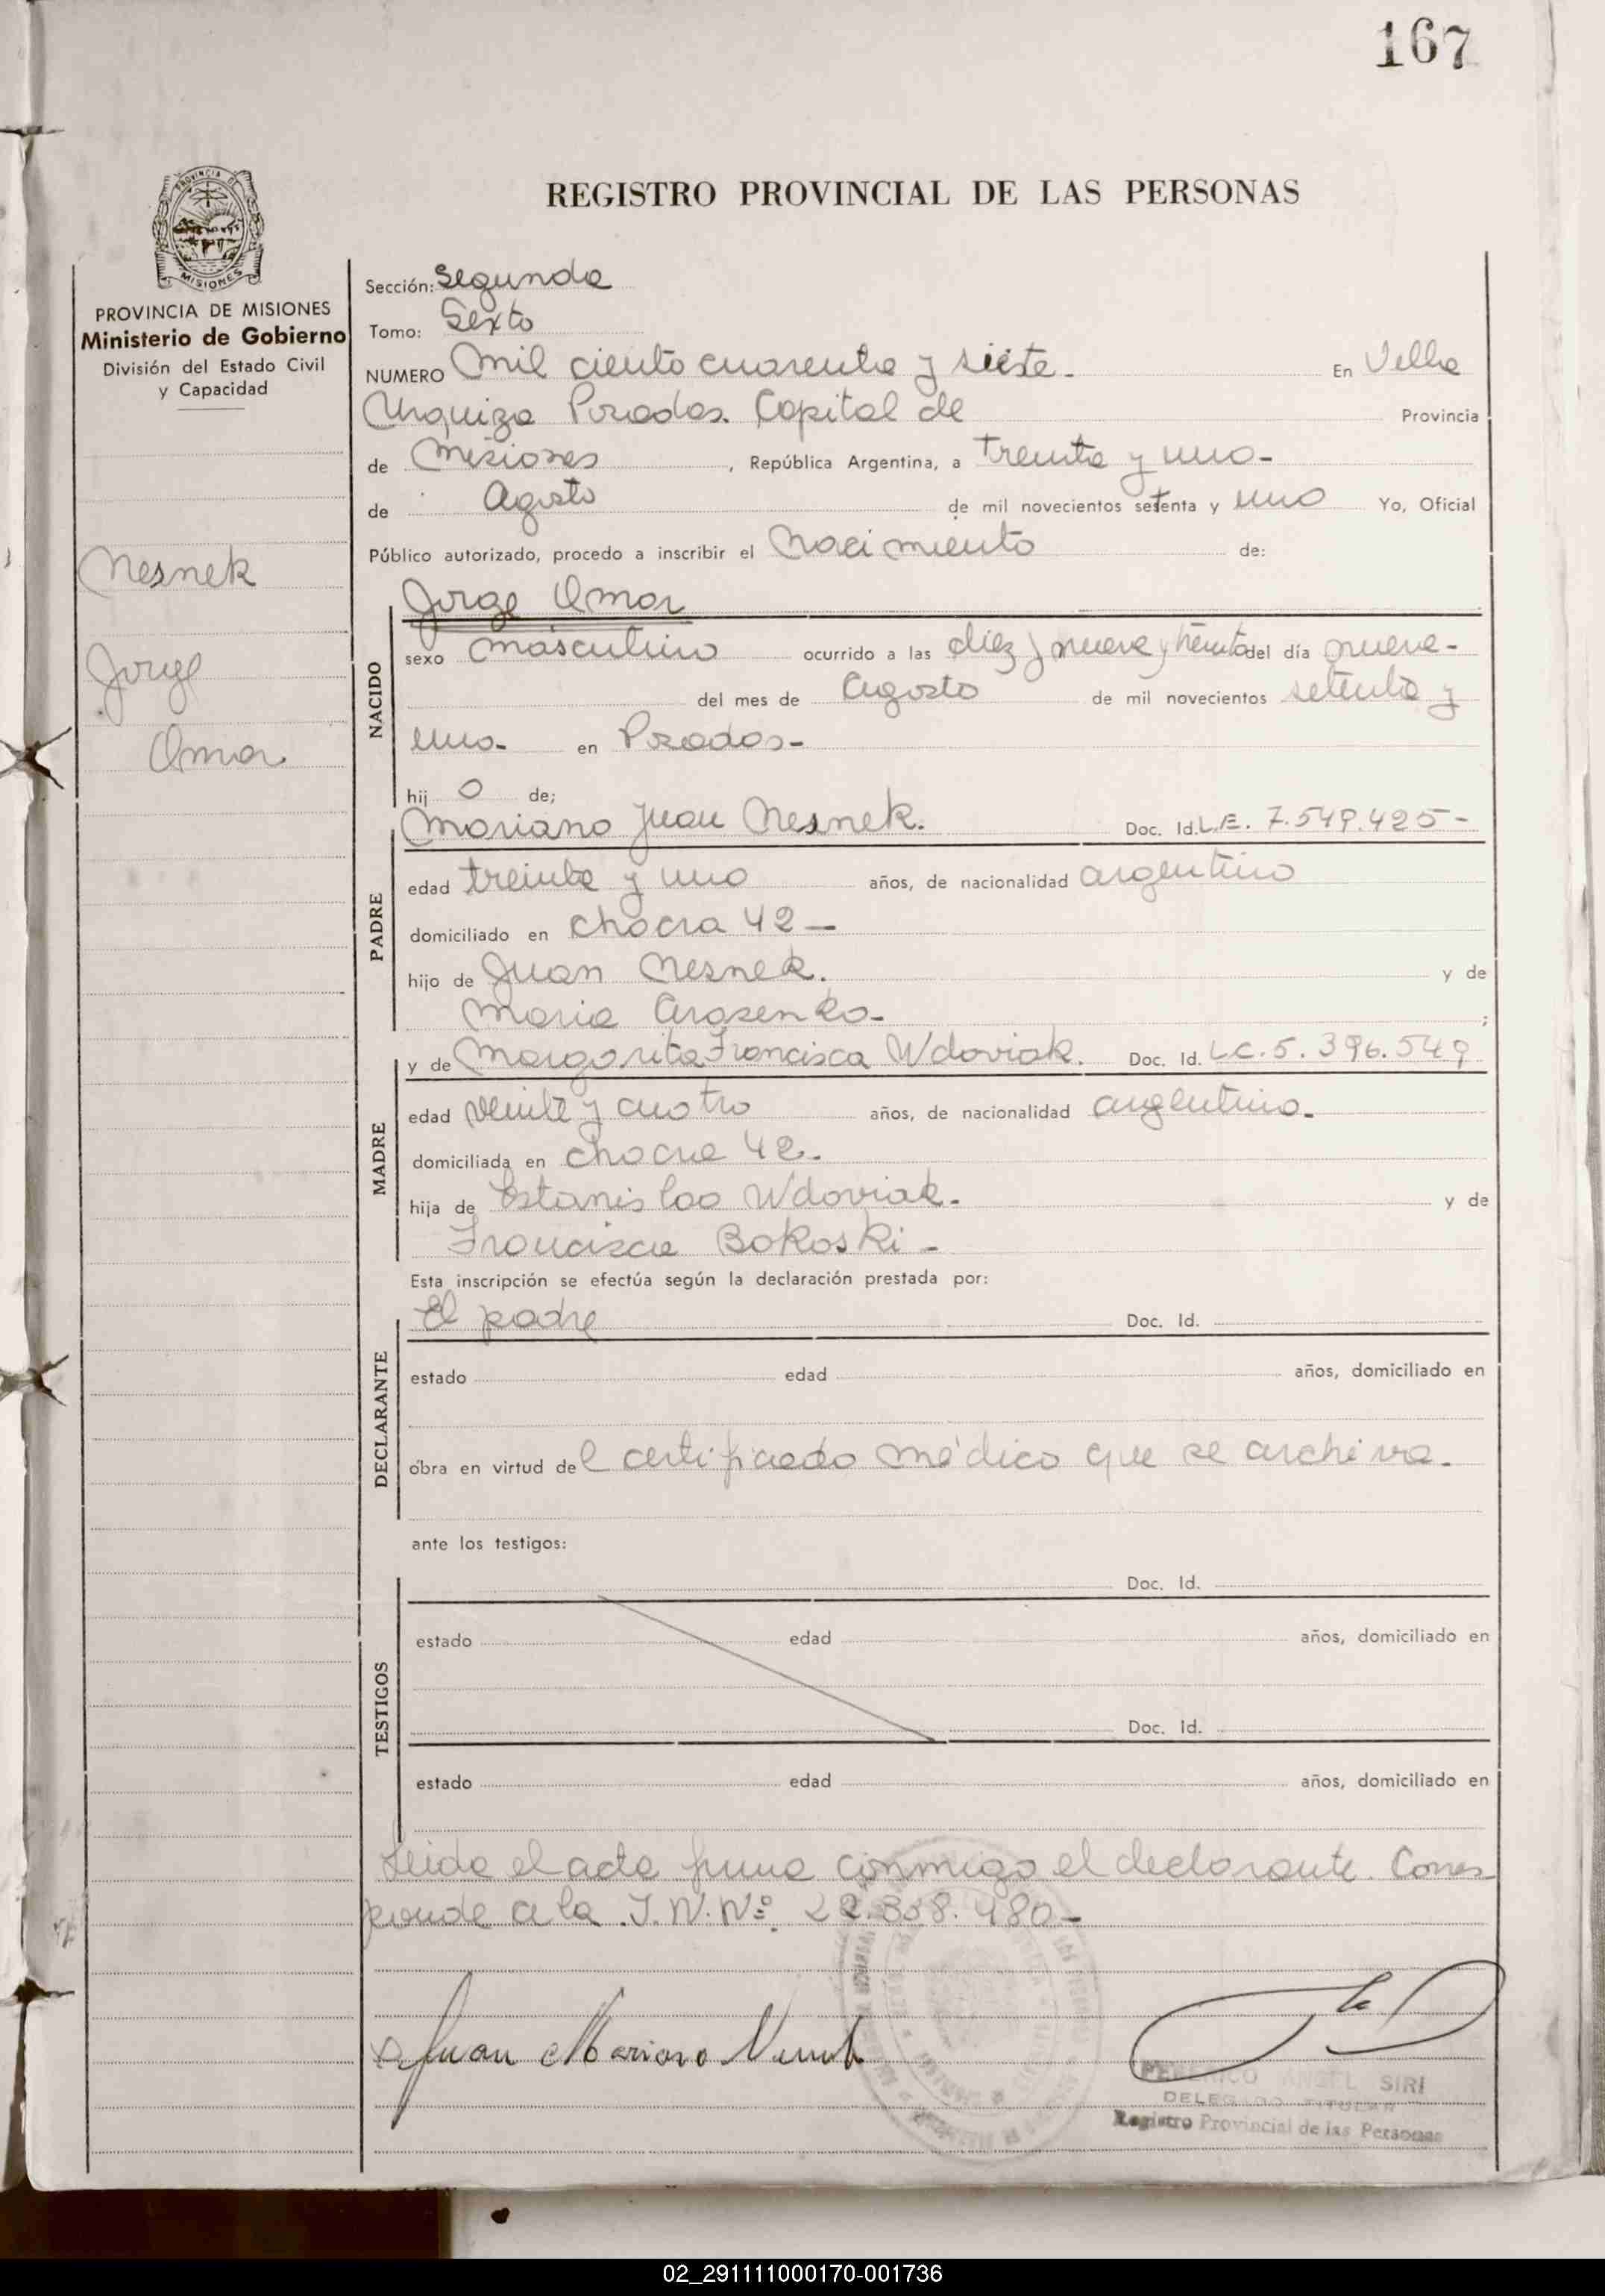 167
PROVINCIA DE
MISIONES
REGISTRO PROVINCIAL DE LAS PERSONAS
PROVINCIA DE MISIONES
Ministerio de Gobierno
División del Estado Civil
y Capacidad
Nesnek
Jorge
Omar
Sección: Segunda
Tomo: Sexto
NUMERO Mil ciento cuarenta y siete - En Villa
Urquiza Posadas. Capital de Provincia
de Misiones, República Argentina, a treinta y uno -
de Agosto de mil novecientos setenta y uno Yo, Oficial
Público autorizado, procedo a inscribir el Nacimiento de:
Jorge Omar
NACIDO
sexo masculino ocurrido a las diez y nueve y treinta del día nueve -
del mes de Agosto de mil novecientos setenta y
uno - en Posadas -
hij o de;
Mariano Juan Nesnek. Doc. Id. L.E. 7.549.425 -
PADRE
edad treinta y uno años, de nacionalidad argentino
domiciliado en chacra 42 -
hijo de Juan Nesnek. y de
Maria Arasenko - ;
y de Margarita Francisca Wdoviak. Doc. Id. L.C. 5.396.549
MADRE
edad veinte y cuatro años, de nacionalidad argentina -
domiciliada en chacra 42 -
hija de Estanislao Wdoviak - y de
Francisca Bokoski -
Esta inscripción se efectúa según la declaración prestada por:
El padre Doc. Id.
DECLARANTE
estado edad años, domiciliado en
obra en virtud del certificado médico que se archiva -
ante los testigos:
Doc. Id.
TESTIGOS
estado edad años, domiciliado en
Doc. Id.
estado edad años, domiciliado en
Leida el acta firma conmigo el declarante. Corres
ponde a la I.N. Nº. 22.338.480 -
Juan Mariano
FEDERICO ANGEL SIRI
DELEGADO TITULAR
Registro Provincial de las Personas
02_291111000170-001736